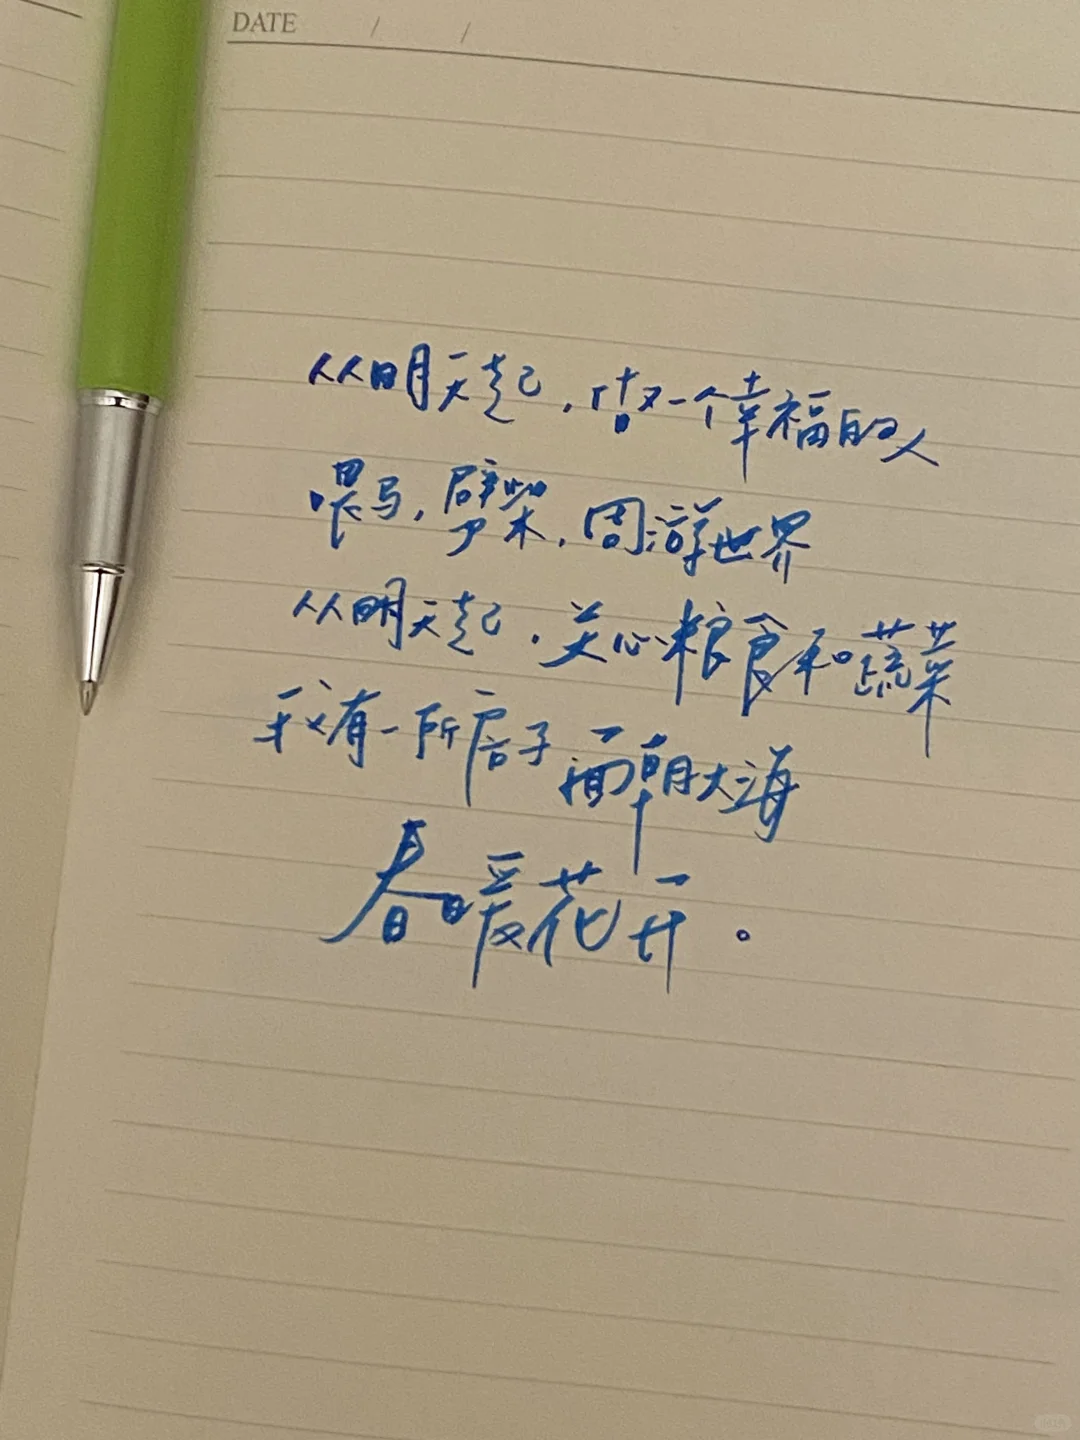 DATE / /
从明天起，做一个幸福的人
喂马，劈柴，周游世界
从明天起，关心粮食和蔬菜
我有一所房子 面朝大海
春暖花开。